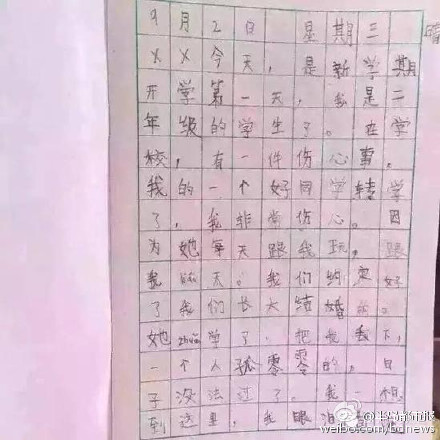 9月2日 星期三
××今天,是新学期
开学第一天,我是二
年级的学生了。在学
校,有一件伤心事。
我的一个好同学转学
了,我非常伤心。因
为她每天跟我玩,跟
我聊天。我们约定好
了我们长大结婚的。
她zhuǎn学了,把我丢下,
一个人孤零零的,日
子没法过了。我一想
到这里,我眼泪
weibo.com/bdnews